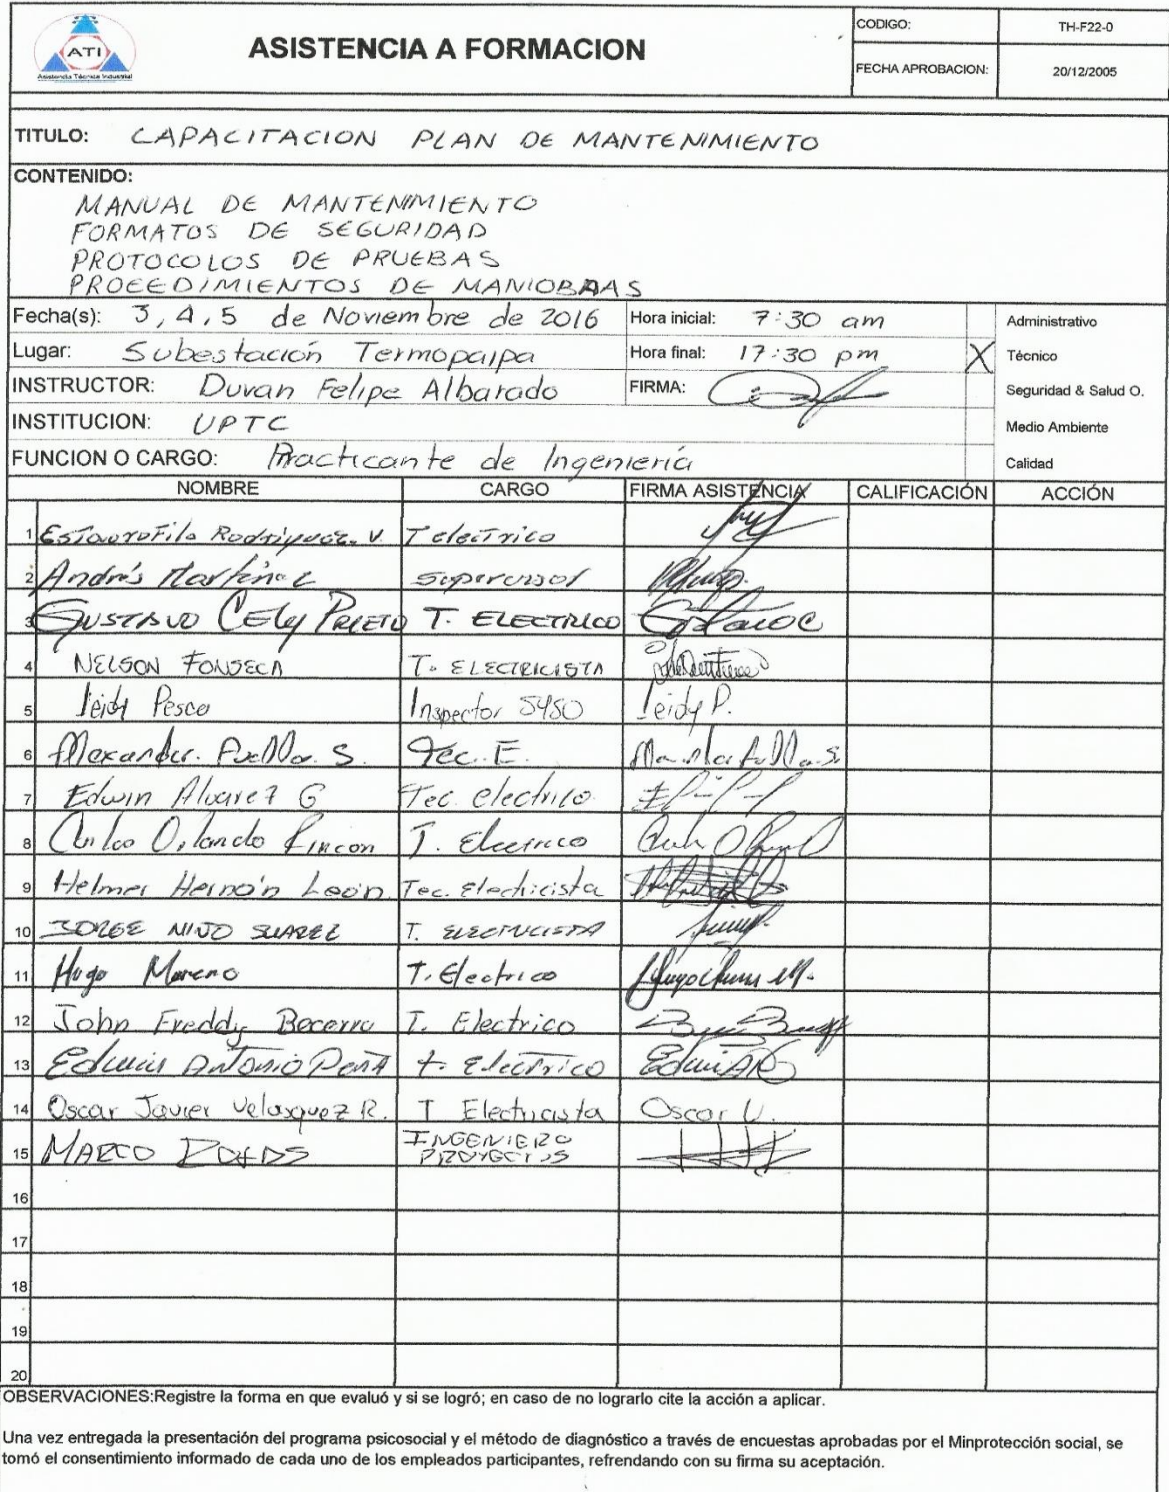 ATI
Asistencia Técnica Industrial
ASISTENCIA A FORMACION
CODIGO: TH-F22-0
FECHA APROBACION: 20/12/2005
TITULO: CAPACITACION PLAN DE MANTENIMIENTO
CONTENIDO:
MANUAL DE MANTENIMIENTO
FORMATOS DE SEGURIDAD
PROTOCOLOS DE PRUEBAS
PROCEDIMIENTOS DE MANIOBRAS
Fecha(s): 3, 4, 5 de Noviembre de 2016 Hora inicial: 7:30 am Administrativo
Lugar: Subestación Termopaipa Hora final: 17:30 pm X Técnico
INSTRUCTOR: Duvan Felipe Albarado FIRMA: Seguridad & Salud O.
INSTITUCION: UPTC Medio Ambiente
FUNCION O CARGO: Practicante de Ingeniería Calidad
NOMBRE CARGO FIRMA ASISTENCIA CALIFICACIÓN ACCIÓN
1 Estaurofilo Rodriguez. V. T electrico
2 Andrés Martinez supervisor
3 GUSTAVO CELY PRIETO T. ELECTRICO
4 NELSON FONSECA T. ELECTRICISTA
5 Leidy Pesca Inspector SYSO Leidy P.
6 Alexander. S. Tec. E.
7 Edwin Alvarez G Tec. electrico.
8 Carlos Orlando Rincon T. Electrico
9 Helmer Hernán León Tec. Electricista
10 JORGE NIÑO SUAREZ T. ELECTRICISTA
11 Hugo Moreno T. Electrico
12 John Freddy Becerra T. Electrico
13 Edwin Antonio Peña t. Electrico
14 Oscar Javier Velasquez R. T Electricista Oscar V.
15 MARCO ROJAS INGENIERO
PROYECTOS
16
17
18
19
20
OBSERVACIONES:Registre la forma en que evaluó y si se logró; en caso de no lograrlo cite la acción a aplicar.
Una vez entregada la presentación del programa psicosocial y el método de diagnóstico a través de encuestas aprobadas por el Minprotección social, se
tomó el consentimiento informado de cada uno de los empleados participantes, refrendando con su firma su aceptación.